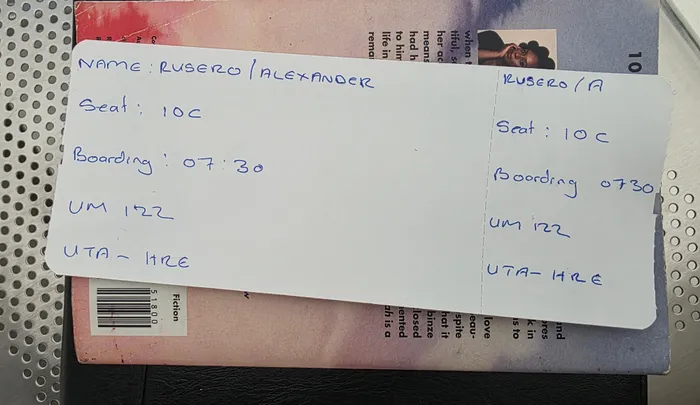 NAME: RUSERO/ALEXANDER
Seat: 10C
Boarding: 07:30
UM 122
UTA- HRE
RUSERO/A
Seat: 10C
Boarding 0730
UM 122
UTA- HRE
10
when
tiful, s
her ac
means
had h
to him
life in
rema
Fiction
51800
love
spite
eau-
hat it
binze
closed
mented
ah is a
and
ores
k in
s to